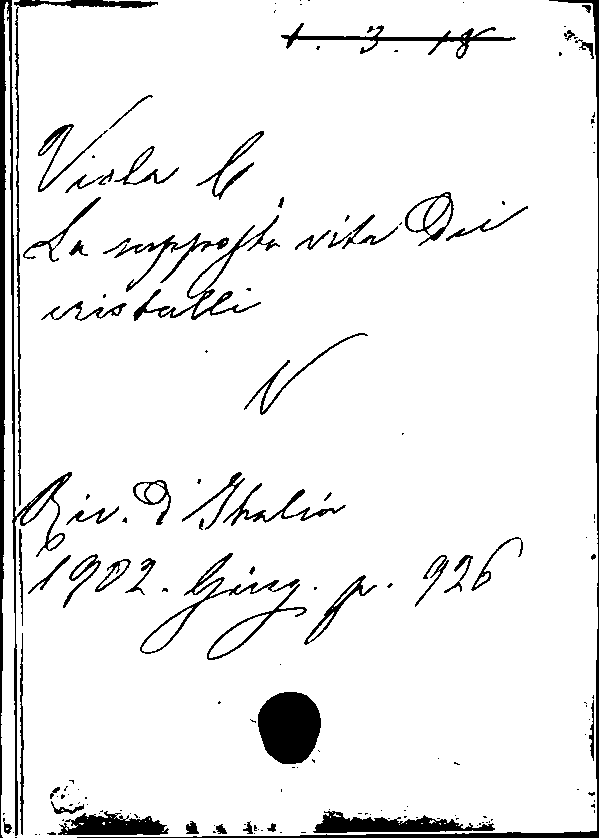 1. 3. 18
Viola C.
La supposta vita dei
cristalli
V
Riv. d'Italia
1902. Giug. p. 926